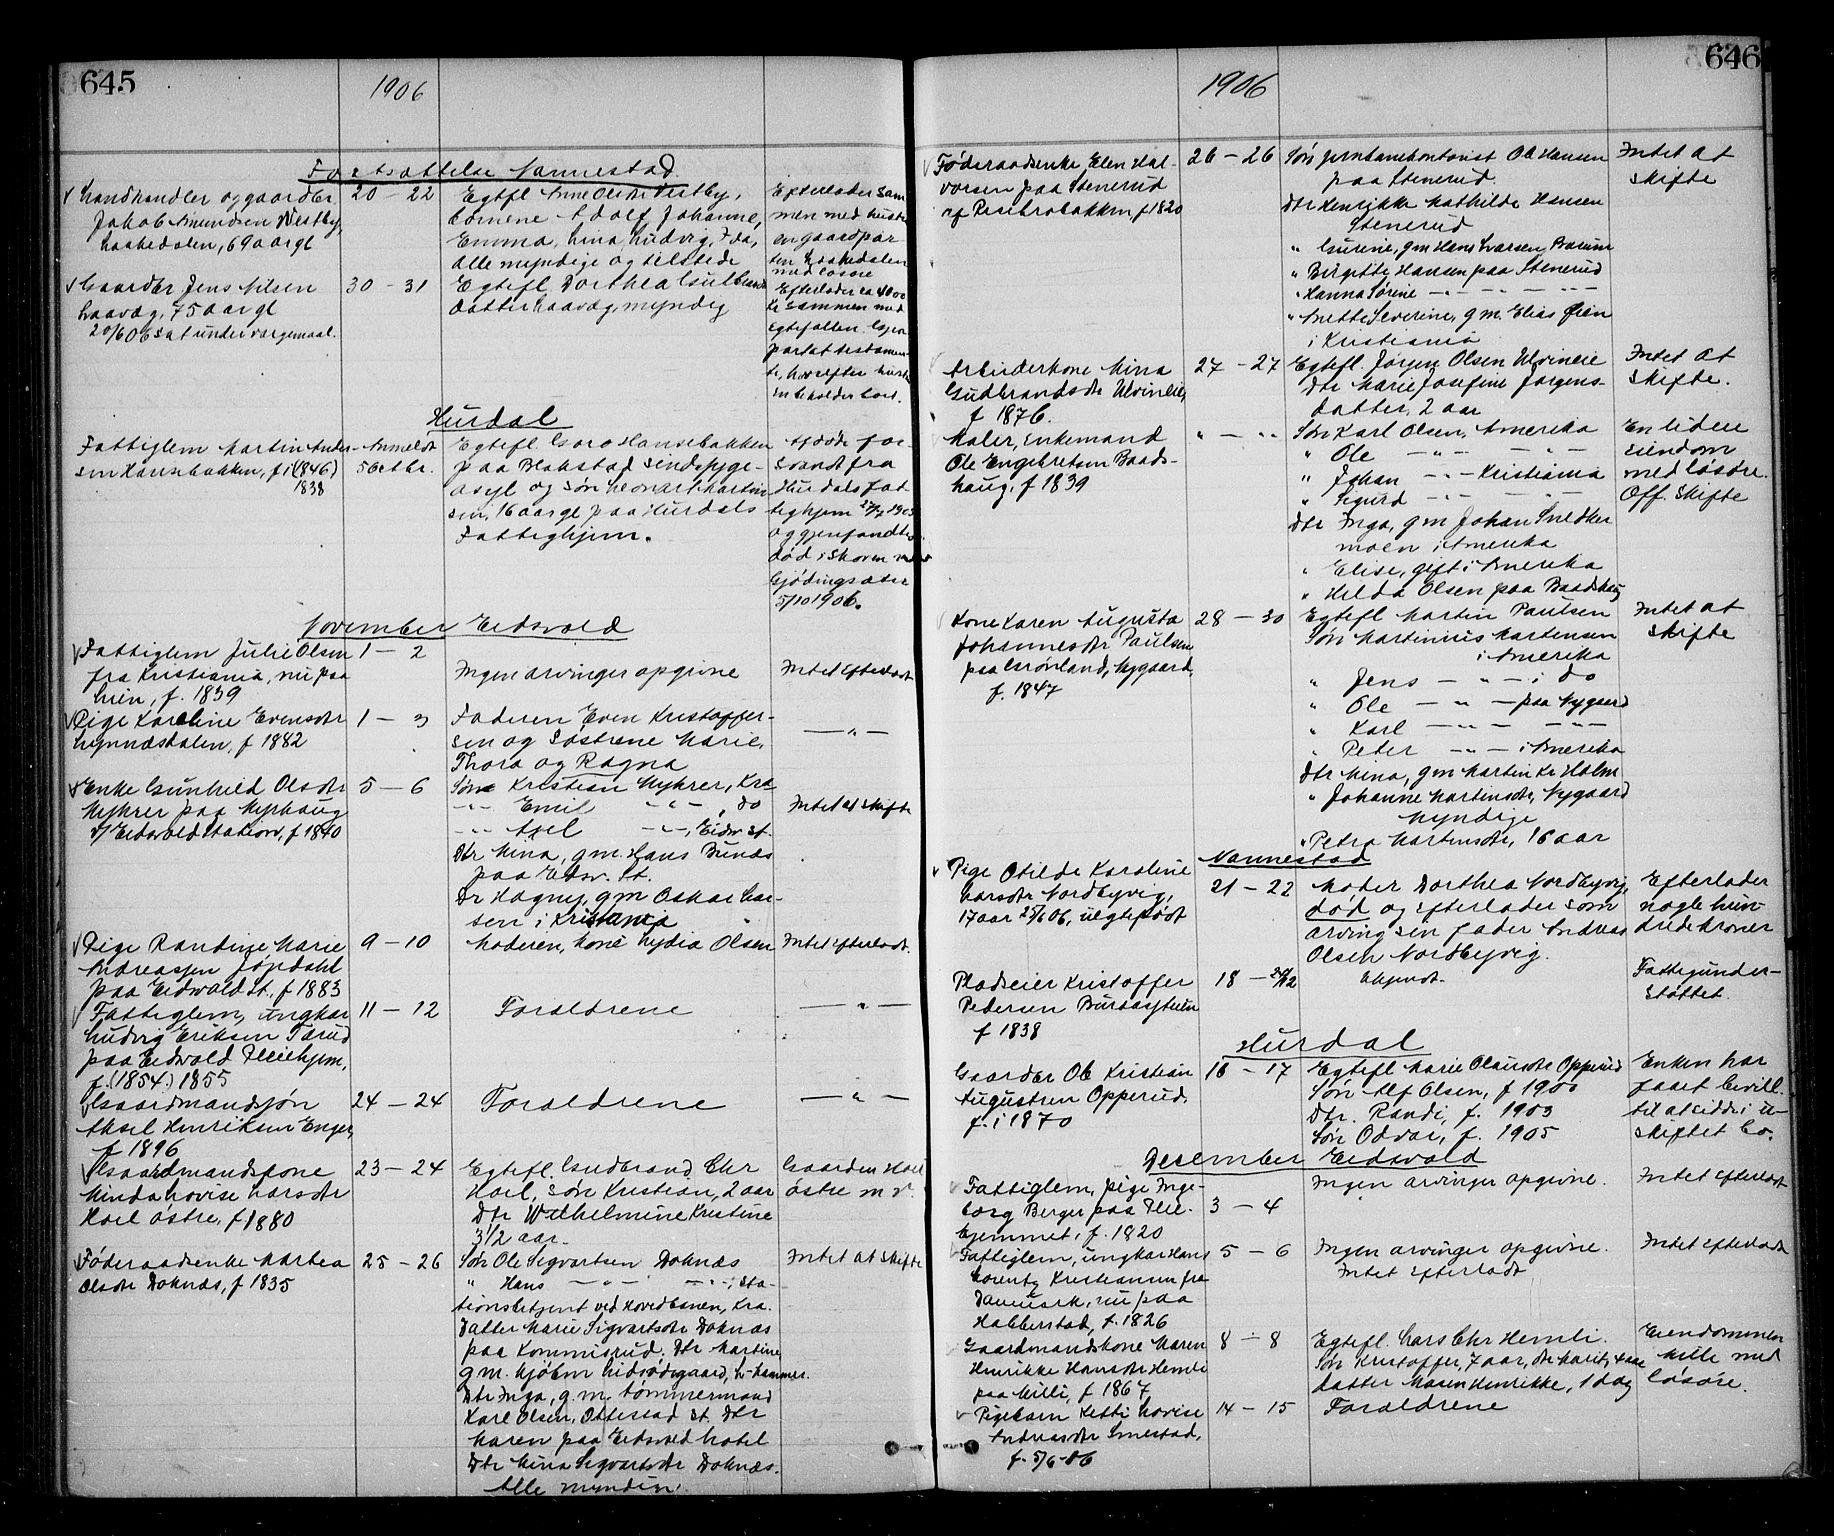 645
1906
Fortsættelse Nannestad.
Landhandler og gaardbr
Jakob Amundsen Vestby,
Haakedalen, 69 aar gl
20 – 22
Egtefl Anne Olsdtr Vestby,
børnene Adolf, Johanne,
Emma, Lina, Ludvig, Ida,
alle myndige og tilstede
Efterlader sam
men med hustru
en gaardpar
ten Haakedalen
med løsøre
Gaardbr Jens Nilsen
Haavag, 75 aar gl
20/6 06 sat under værgemaal.
30 – 31
Egtefl Dorthea Gulbrands
datter Haavag, myndig
Efterlader ca 4000
kr sammen med
egtefællen.
testamen
te, hvorefter hustru
beholder boet.
Hurdal
Fattiglem Martin Ander
sen Hansebakken, f i (1846)
1838
Anmeldt
5 Octbr.
Egtefl Goro Hansebakken
paa Blakstad Sindssyge-
asyl og søn Leonart Martin
sen, 16 aar gl paa Hurdals
Fattighjem.
Afdøde for
svandt fra
Hurdals fat
tighjem 1905
og gjenfandtes
død i skoven
5/10 1906.
November Eidsvold
Fattiglem Julie Olsen
fra Kristiania, nu paa
Lien, f. 1839
1 – 2
Ingen arvinger opgivne
Intet efterladt
Pige Karoline Evensdtr
Lynnæsdalen, f 1882
1 – 3
Faderen Even Kristoffer-
sen og Søstrene Marie,
Thora og Ragna
– " –
Enke Gunhild Olsdtr
Nykrer paa Myrhaug
v/ Eidsvold Station, f 1840
5 – 6
Søn Kristian Nykrer, Kra
– " – Emil – " –, do
– " – Axel – " –, Eidsv. St.
Dtr Mina, gm. Hans Bunæs
paa Eidsv. St.
Dr Hagny, gm Oskar Lar-
sen i Kristiania
Intet at skifte
Pige Randine Marie
Andreassen Jøndahl
paa Eidsvold St. f 1883
9 – 10
Moderen, kone Lydia Olsen
Intet efterladt.
Fattiglem, ungkar
Ludvig Eriksen Tærud
paa Eidsvold Pleiehjem,
f. (1854) 1855
11 – 12
Forældrene
– " –
Gaardmandssøn
Aksel Henriksen Enger,
f 1896
24 – 24
Forældrene
– " –
Gaardmandskone
Minda Lovise Larsdtr
Hoel østre, f 1880
23 – 24
Egtefl. Gudbrand Chr
Hoel, søn Kristian, 2 aar
Dtr Wilhelmine Kristine
3 1/2 aar.
Gaarden Hoel
østre m. v.
Føderaadsenke Marthea
Olsdtr Doknæs, f 1835
25 – 26
Søn Ole Sigvartsen Doknæs
" Hans – " – – " –, sta-
tionsbetjent ved Hovedbanen, Kra.
Datter Marie Sigvartsdtr Doknæs
paa Kommisrud. Dtr Martine
gm. Lillehammer.
Dtr Inga, g. m. tømmermand
Karl Olsen, Ottestad St. Dtr
Maren paa Eidsvold hotel
Dtr Mina Sigvartsdtr Doknæs.
Alle myndige.
Intet at skifte
646
1906
Føderaadsenke Elen Hal-
vorsen paa Stenerud
f 1820
26 – 26
Søn Ole Hansen
paa Stenerud.
Dtr Henrikke Mathilde Hansen
Stenerud
" Gurine, gm Hans Ivarsen, Bærum
" Birgitte Hansen paa Stenerud
" Hanna Sørine – " – – " –
" Anette Severine, g m. Elias Øien
i Kristiania
Intet at
skifte
Arbeiderkone Mina
Gudbrandsdtr Ulvinlie,
f 1876.
27 – 27
Egtefl. Jørgen Olsen Ulvinlie
Dtr Marie Josefine Jørgens-
datter, 2 aar
Intet at
skifte.
Maler, enkemand
Ole Engebretsen Baads-
haug, f 1839
" – "
Søn Karl Olsen, Amerika
" Ole – " – – " –
" Johan – " – Kristiania
" Sigurd – " – – " –
Dtr Inga, gm Johan Snedker
moen i Amerika
" Elise, gift i Amerika
" Hilda Olsen paa Baadshaug
En liden
eiendom
med løsøre.
Off. skifte
Kone Karen Augusta
Johannesdtr Paulsen
paa Grønland, Nygaard,
f. 1847
28 – 30
Egtefl Martin Paulsen
Søn Martinius Martinsen
i Amerika
" Jens – " – i do
" Ole – " – paa Nygaard
" Karl – " – – " –
" Peter – " – i Amerika
Dtr Mina, gm Martin Kr Holm
" Johanne Martinsdtr, Nygaard
Myndige
" Petra Martinsdtr, 16 aar
Intet at
skifte
Nannestad
Pige Otilde Karoline
Larsdtr Nordbyvig,
17 aar 25/6 06, uegtefødt
21 – 22
Moder Dorthea Nordbyvig,
død og efterlader som
arving sin fader Andreas
Olsen Nordbyvig.
Efterlader
nogle hun-
drede kroner
Pladseier Kristoffer
Pedersen
f 1838
18 –
Ukjendt.
Fattigunder-
støttet.
Hurdal
Gaardbr Ole Kristian
Augustsen Opperud,
f. i 1870
16 – 17
Egtefl Marie Olausdtr Opperud
Søn Alf Olsen, f 1900
Dtr. Randi, f. 1903
Søn Odvar, f. 1905
Enken har
faaet bevill.
til at sidde i u-
skiftet bo.
Desember Eidsvold
Fattiglem, pige Inge-
borg Berger paa Plei-
ehjemmet, f. 1820
3 – 4
Ingen arvinger opgivne.
Intet efterladt
Fattiglem, ungkar Hans
Lorentz Kristiansen fra
Danmark, nu paa
Habberstad, f. 1826
5 – 6
Ingen arvinger opgivne.
Intet efterladt
Intet efterladt
Gaardmandskone Maren
Henrikke Hansdtr Hemli
paa Milli, f 1867
8 – 8
Egtefl. Lars Chr Hemli.
Søn Kristoffer, 7 aar, dtr Marit, 4 aar
datter Maren Henrikke, 1 dag
Eiendommen
Mille med
løsøre.
Pigebarn Ketti Lovise
Andreasdtr Smestad,
f. 5/6-06
14 – 15
Forældrene